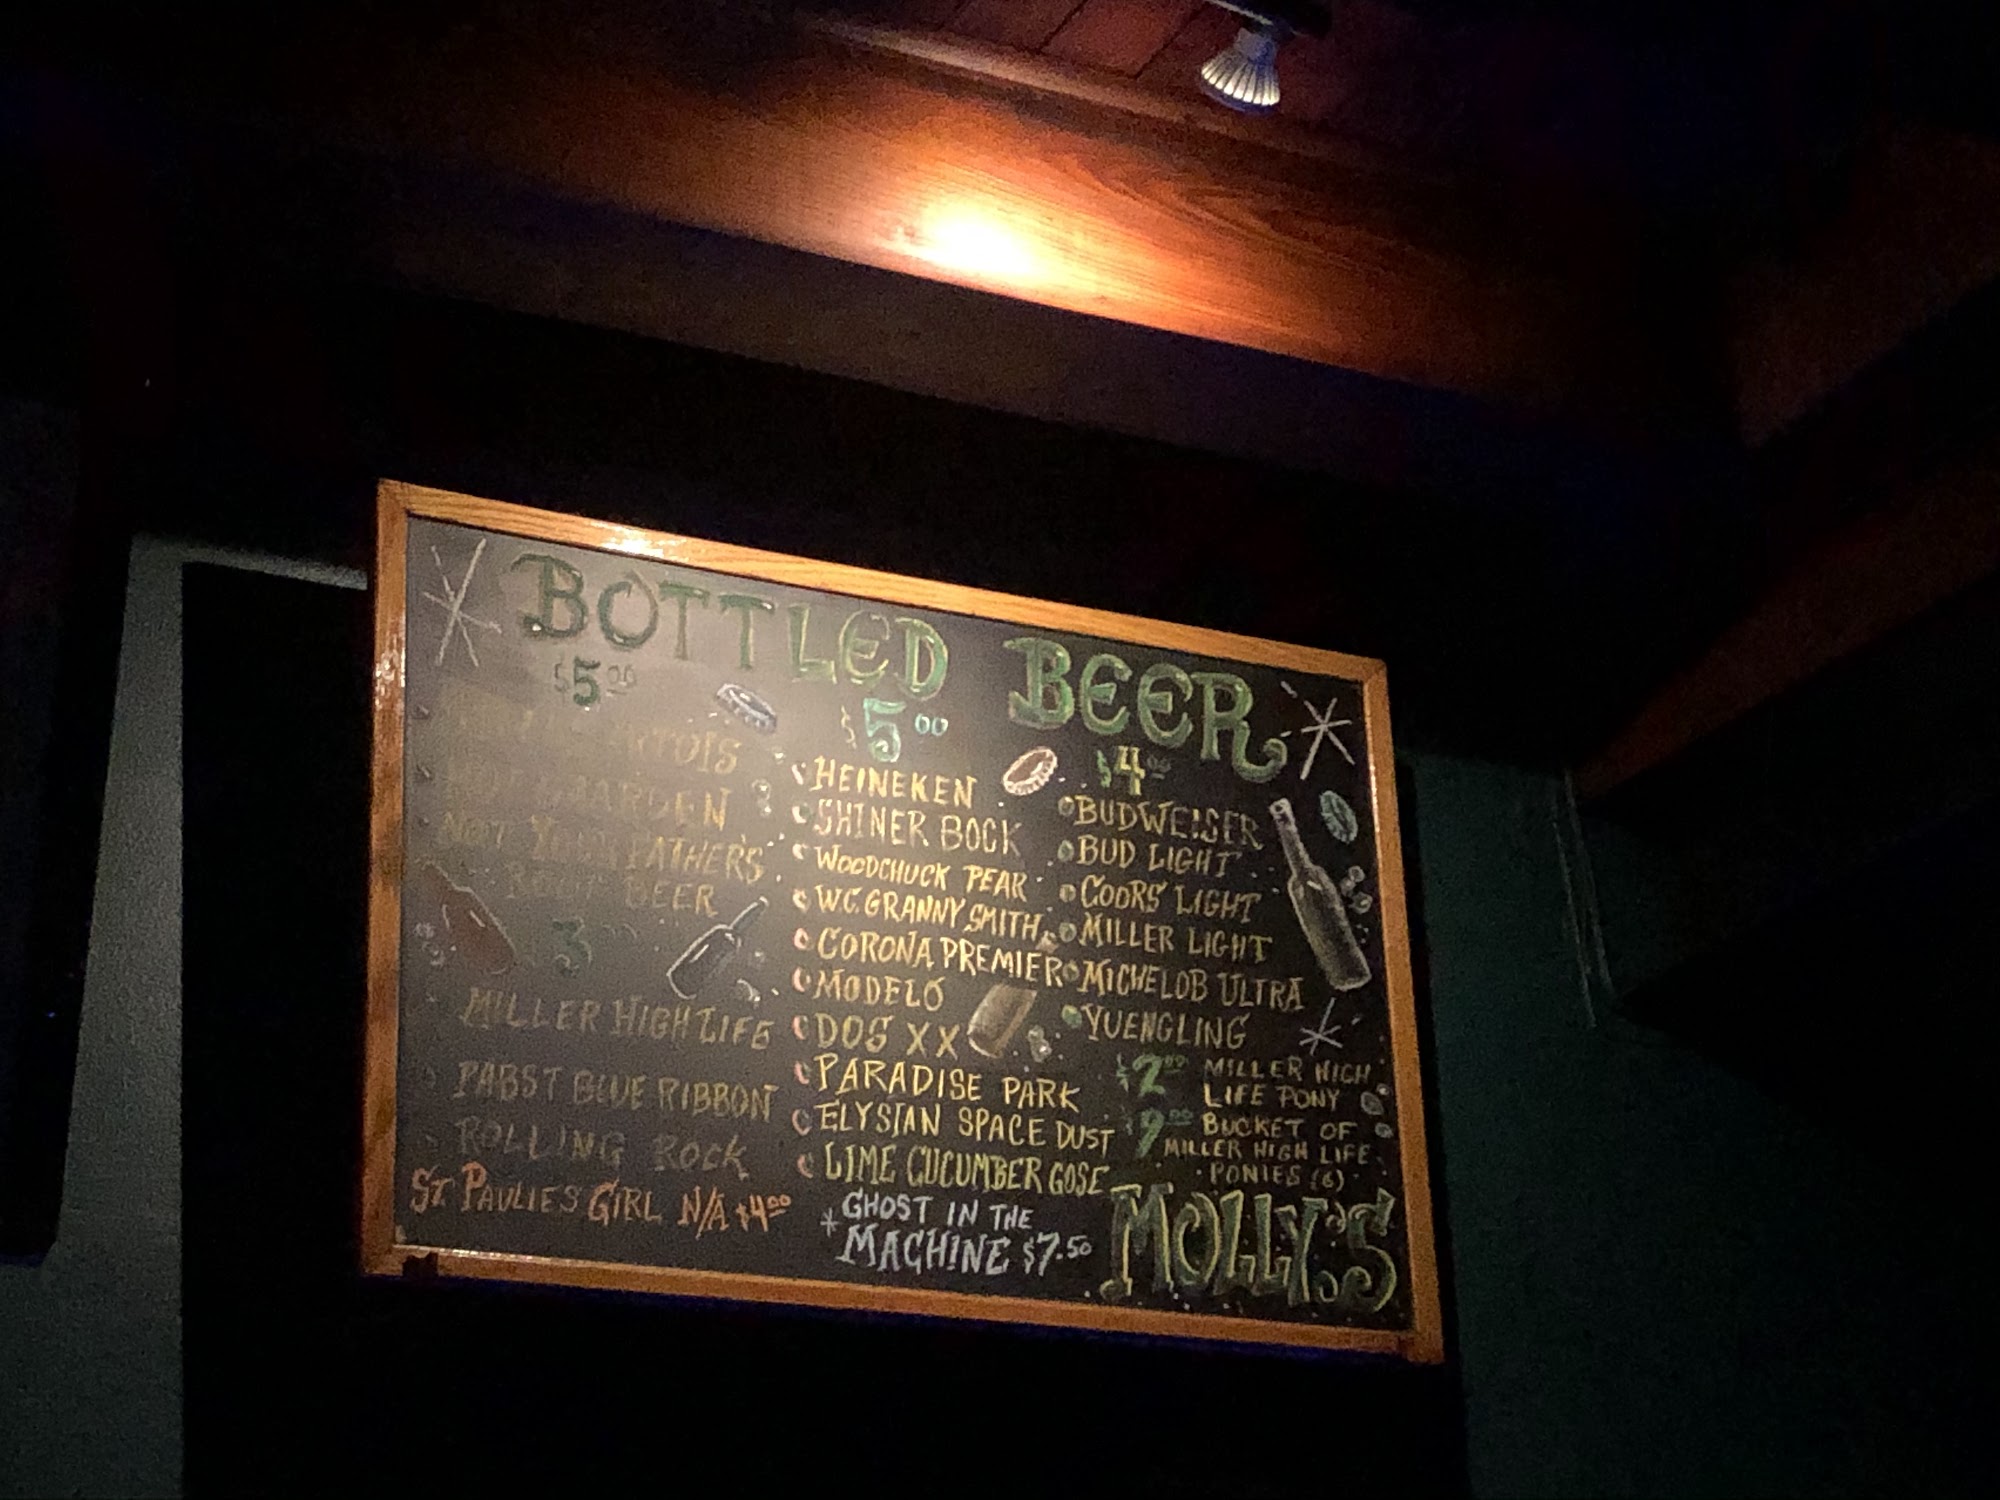 BOTTLED BEER
$5.00
ARTOIS
HOEGAARDEN
NOT YOUR FATHER'S
ROOT BEER
3
MILLER HIGH LIFE
PABST BLUE RIBBON
ROLLING ROCK
ST PAULIES GIRL N/A $4.00
$5.00
HEINEKEN
SHINER BOCK
WOODCHUCK PEAR
W.C. GRANNY SMITH
CORONA PREMIER
MODELO
DOS XX
PARADISE PARK
ELYSIAN SPACE DUST
LIME CUCUMBER GOSE
GHOST IN THE
* MACHINE $7.50
$4.00
BUDWEISER
BUD LIGHT
COORS LIGHT
MILLER LIGHT
MICHELOB ULTRA
YUENGLING
$2.00 MILLER HIGH
LIFE PONY
$9.00 BUCKET OF
MILLER HIGH LIFE
PONIES (6)
MOLLY'S